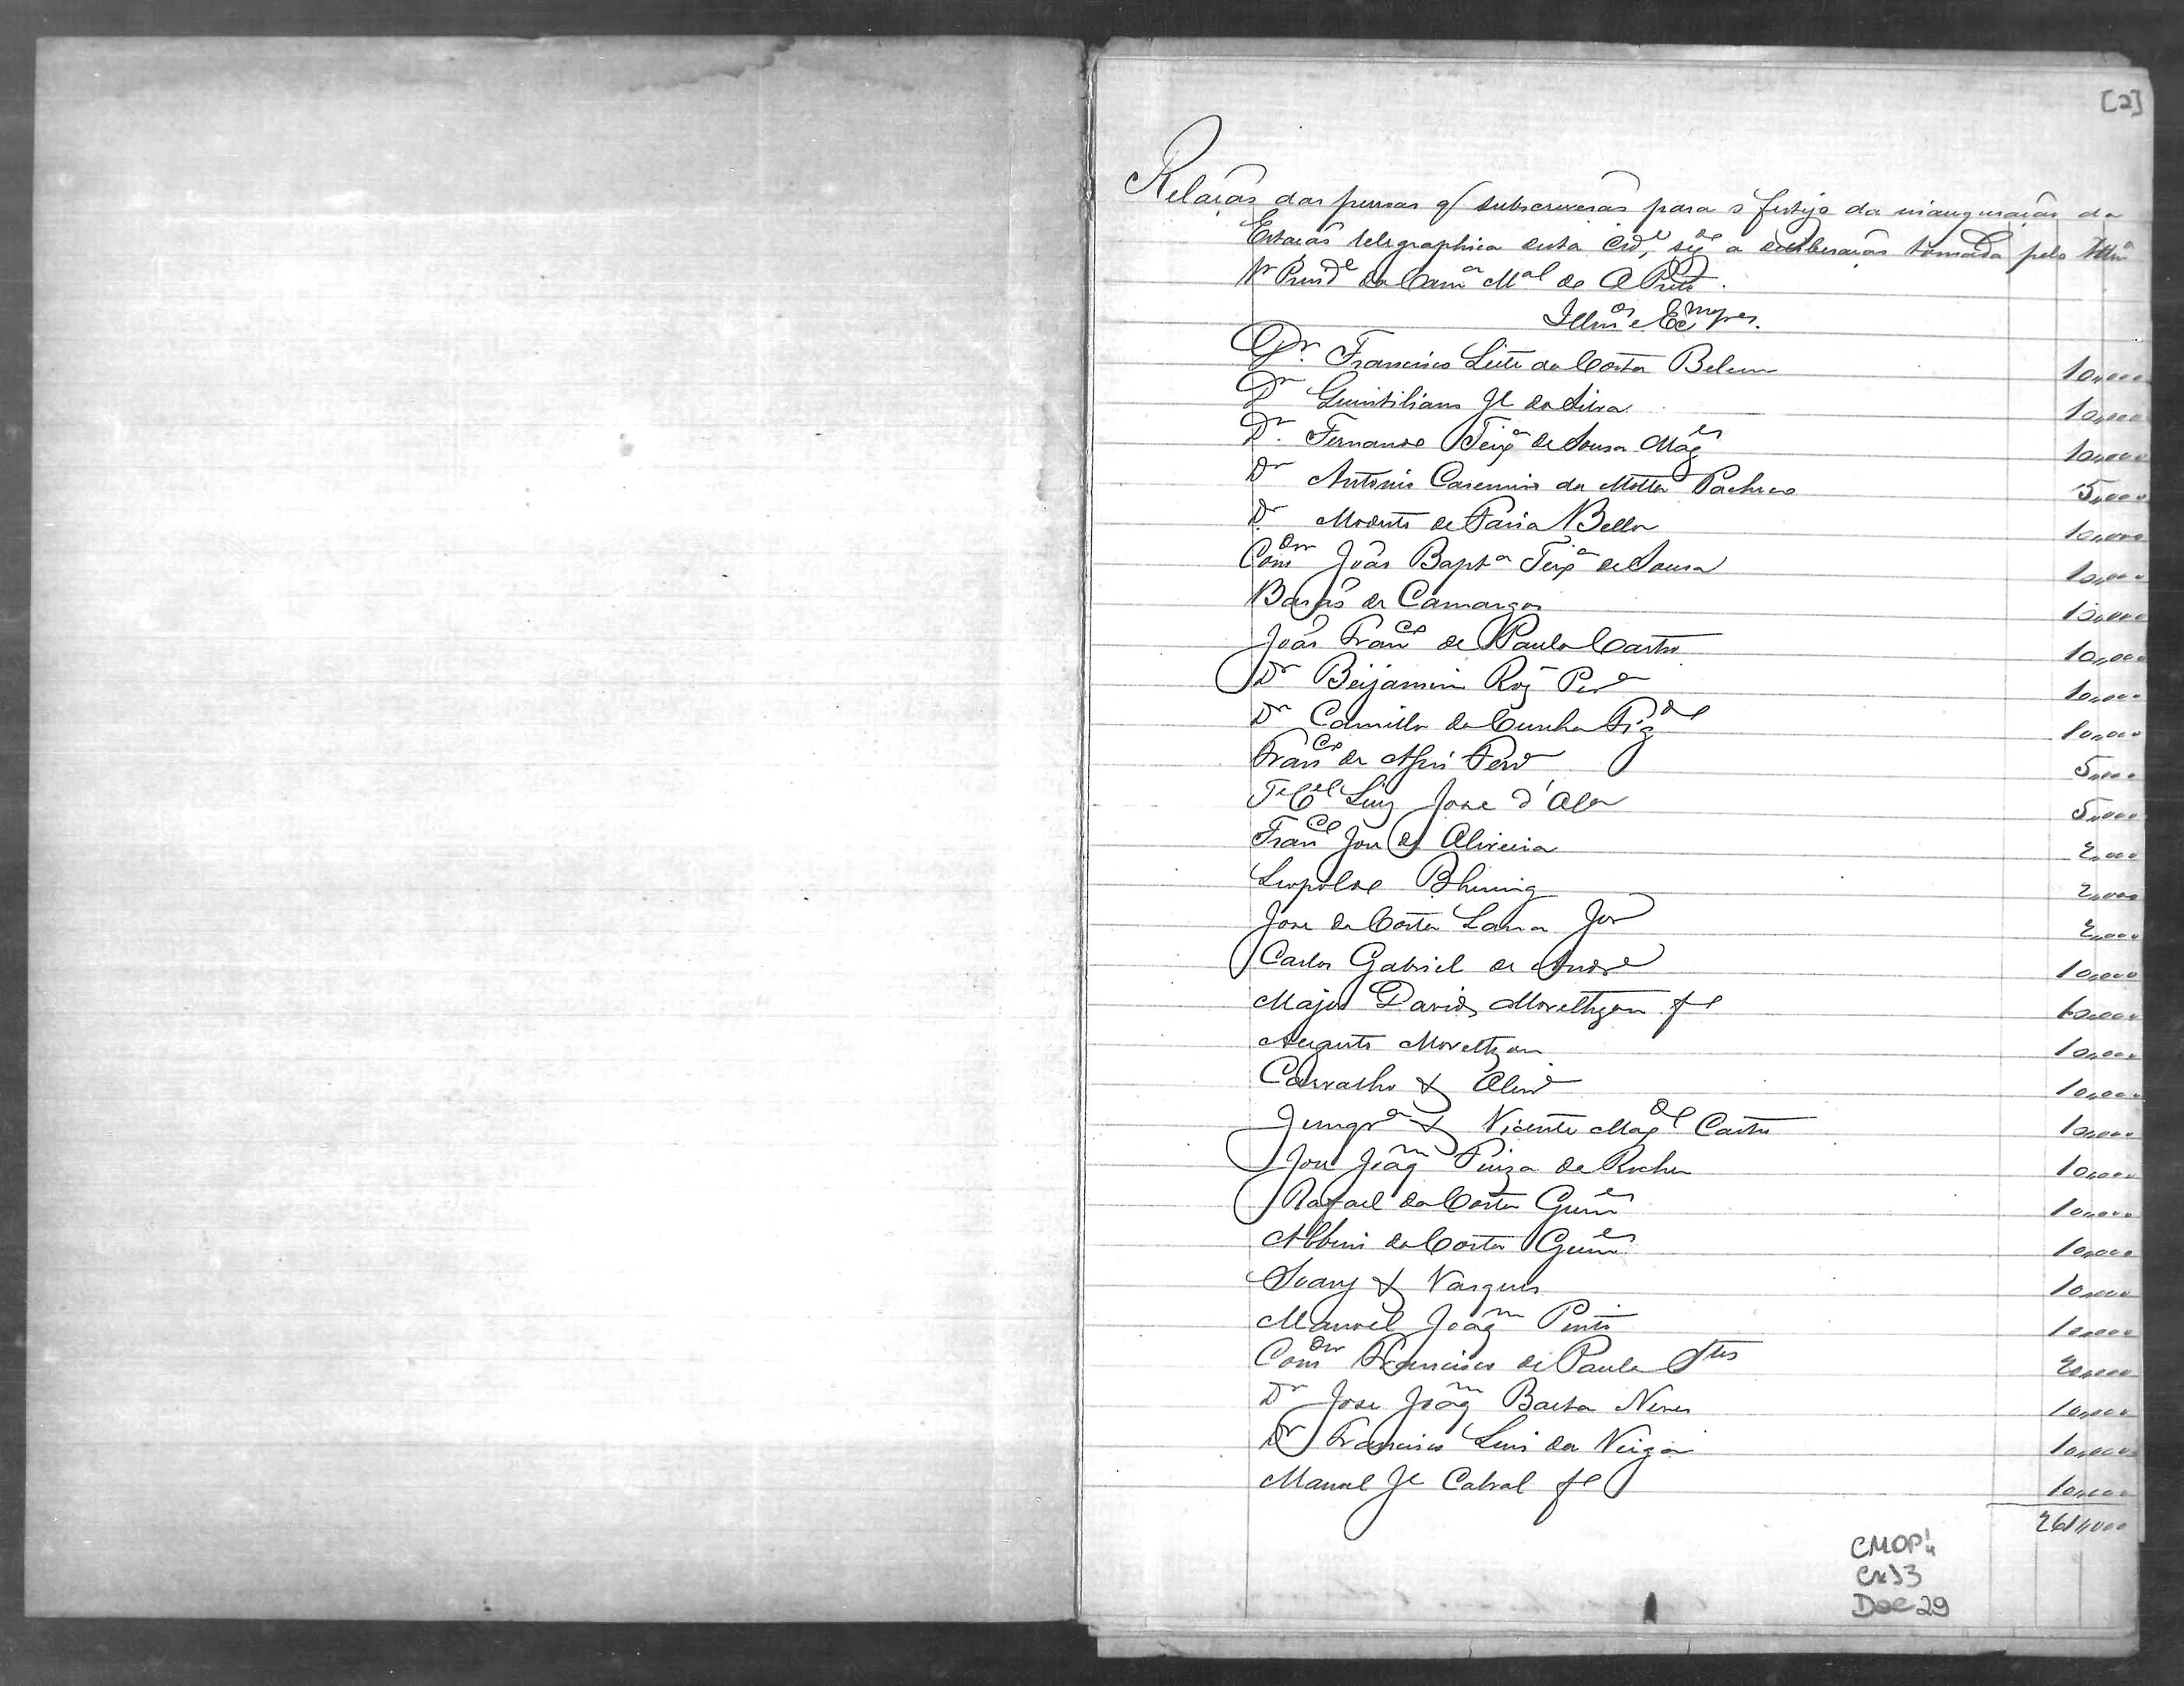 [2]
Relação das pessoas q/ subscreverão para o festejo da inauguração da
Estação telegraphica desta Cide, sege a deliberação tomada pelo Illmo
Sr Preside da Camª Mal do O Preto.
Illmos e Excmos Snres.
Dr. Francisco Leite da Costa Belem 10,,000
Dr Quintiliano Je da Silva 10,,000
Dr. Fernando Teixª de Sousa Mages 10,,000
Dr Antonio Casemiro da Motta Pacheco 5,,000
Dr. Modesto de Faria Bello 10,,000
Comdor João Baptª Teixª de Sousa 10,,000
Barão de Camargos 10,,000
João Franco de Paula Castro 10,,000
Dr Beijamin Roiz Perª 10,,000
Dr Camillo da Cunha Figdo 10,,000
Franco de Assis 5,,000
Te Cel Luiz Jose d'Olª 5,,000
Franco Jose de Oliveira 2,,000
Leopoldo Bhering 2,,000
Jose da Costa Lana Jor 2,,000
Carlos Gabriel de Andre 10,,000
Major David Morethzon fe 10,,000
Augusto Moretzon 10,,000
Carvalho & Olivª 10,,000
Jungrª & Vicente Mage Castro 10,,000
Jose Joaqm Puiza da Rocha 10,,000
Rafael da Costa Guimes 10,,000
Albino da Costa Guimes 10,,000
Soares & Vasques 10,,000
Manoel Joaqm Pinto 10,,000
Comdor Francisco de Paula Stos 20,,000
Dr Jose Joaqm Baeta Neves 10,,000
Dr Francisco Luis da Veiga 10,,000
Manoel Je Cabral fe 10,,000
261,,000
CMOP
Cx13
Doc 29